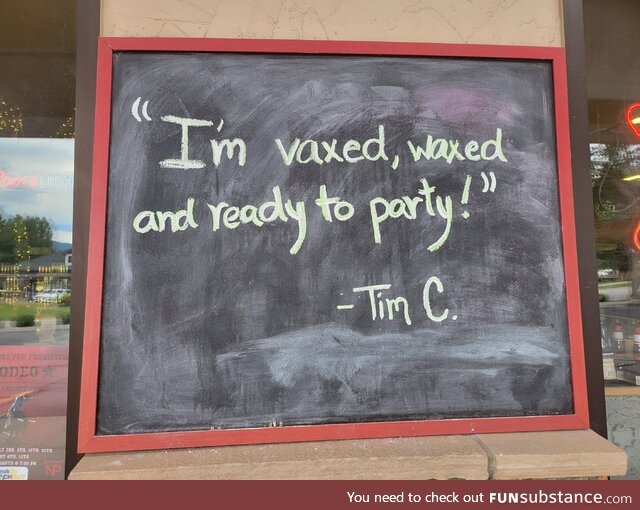 "I'm vaxed, waxed
and ready to party!"
- Tim C.
You need to check out FUNsubstance.com